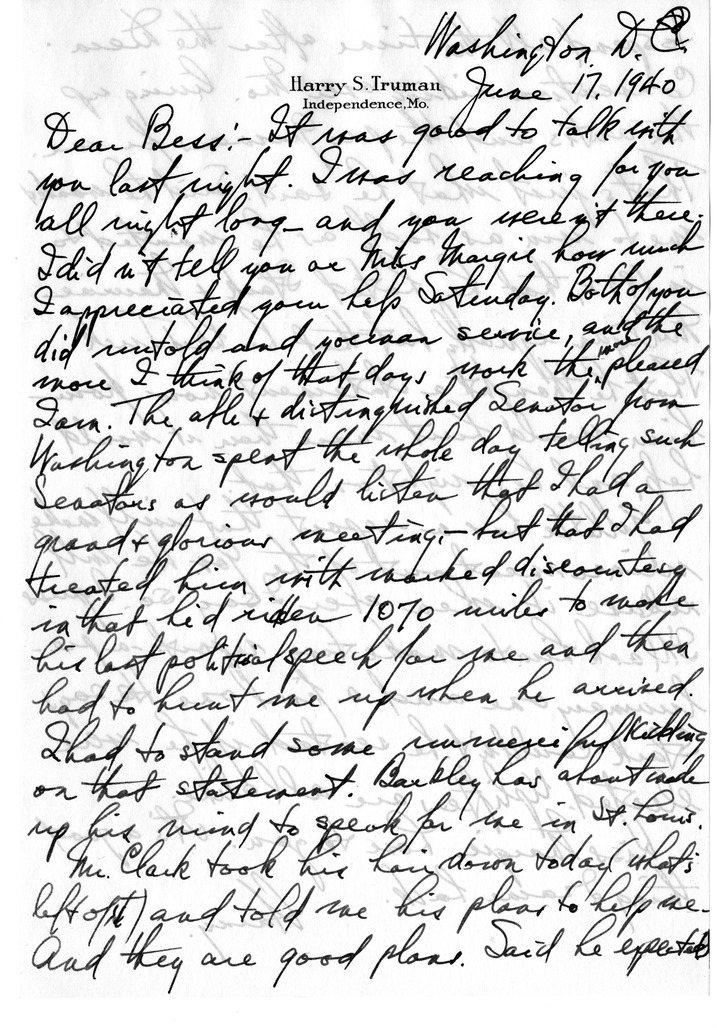 Washington, D.C.
Harry S. Truman
Independence, Mo.
June 17, 1940
Dear Bess:- It was good to talk with
you last night. I was reaching for you
all night long- and you weren't there.
I didn't tell you or Miss Margie how much
I appreciated your help Saturday. Both of you
did untold and yoeman service, and the
more I think of that days work the more pleased
I am. The able & distinguished Senator from
Washington spent the whole day telling such
Senators as would listen that I had a
grand & glorious meeting,- but that I had
treated him with marked discourtesy
in that he'd ridden 1070 miles to make
his last political speech for me and then
had to hunt me up when he arrived.
I had to stand some unmerciful kidding
on that statement. Barkley has about made
up his mind to speak for me in St. Louis.
Mr. Clark took his hair down today (what's
left of it) and told me his plans to help me-
And they are good plans. Said he expected